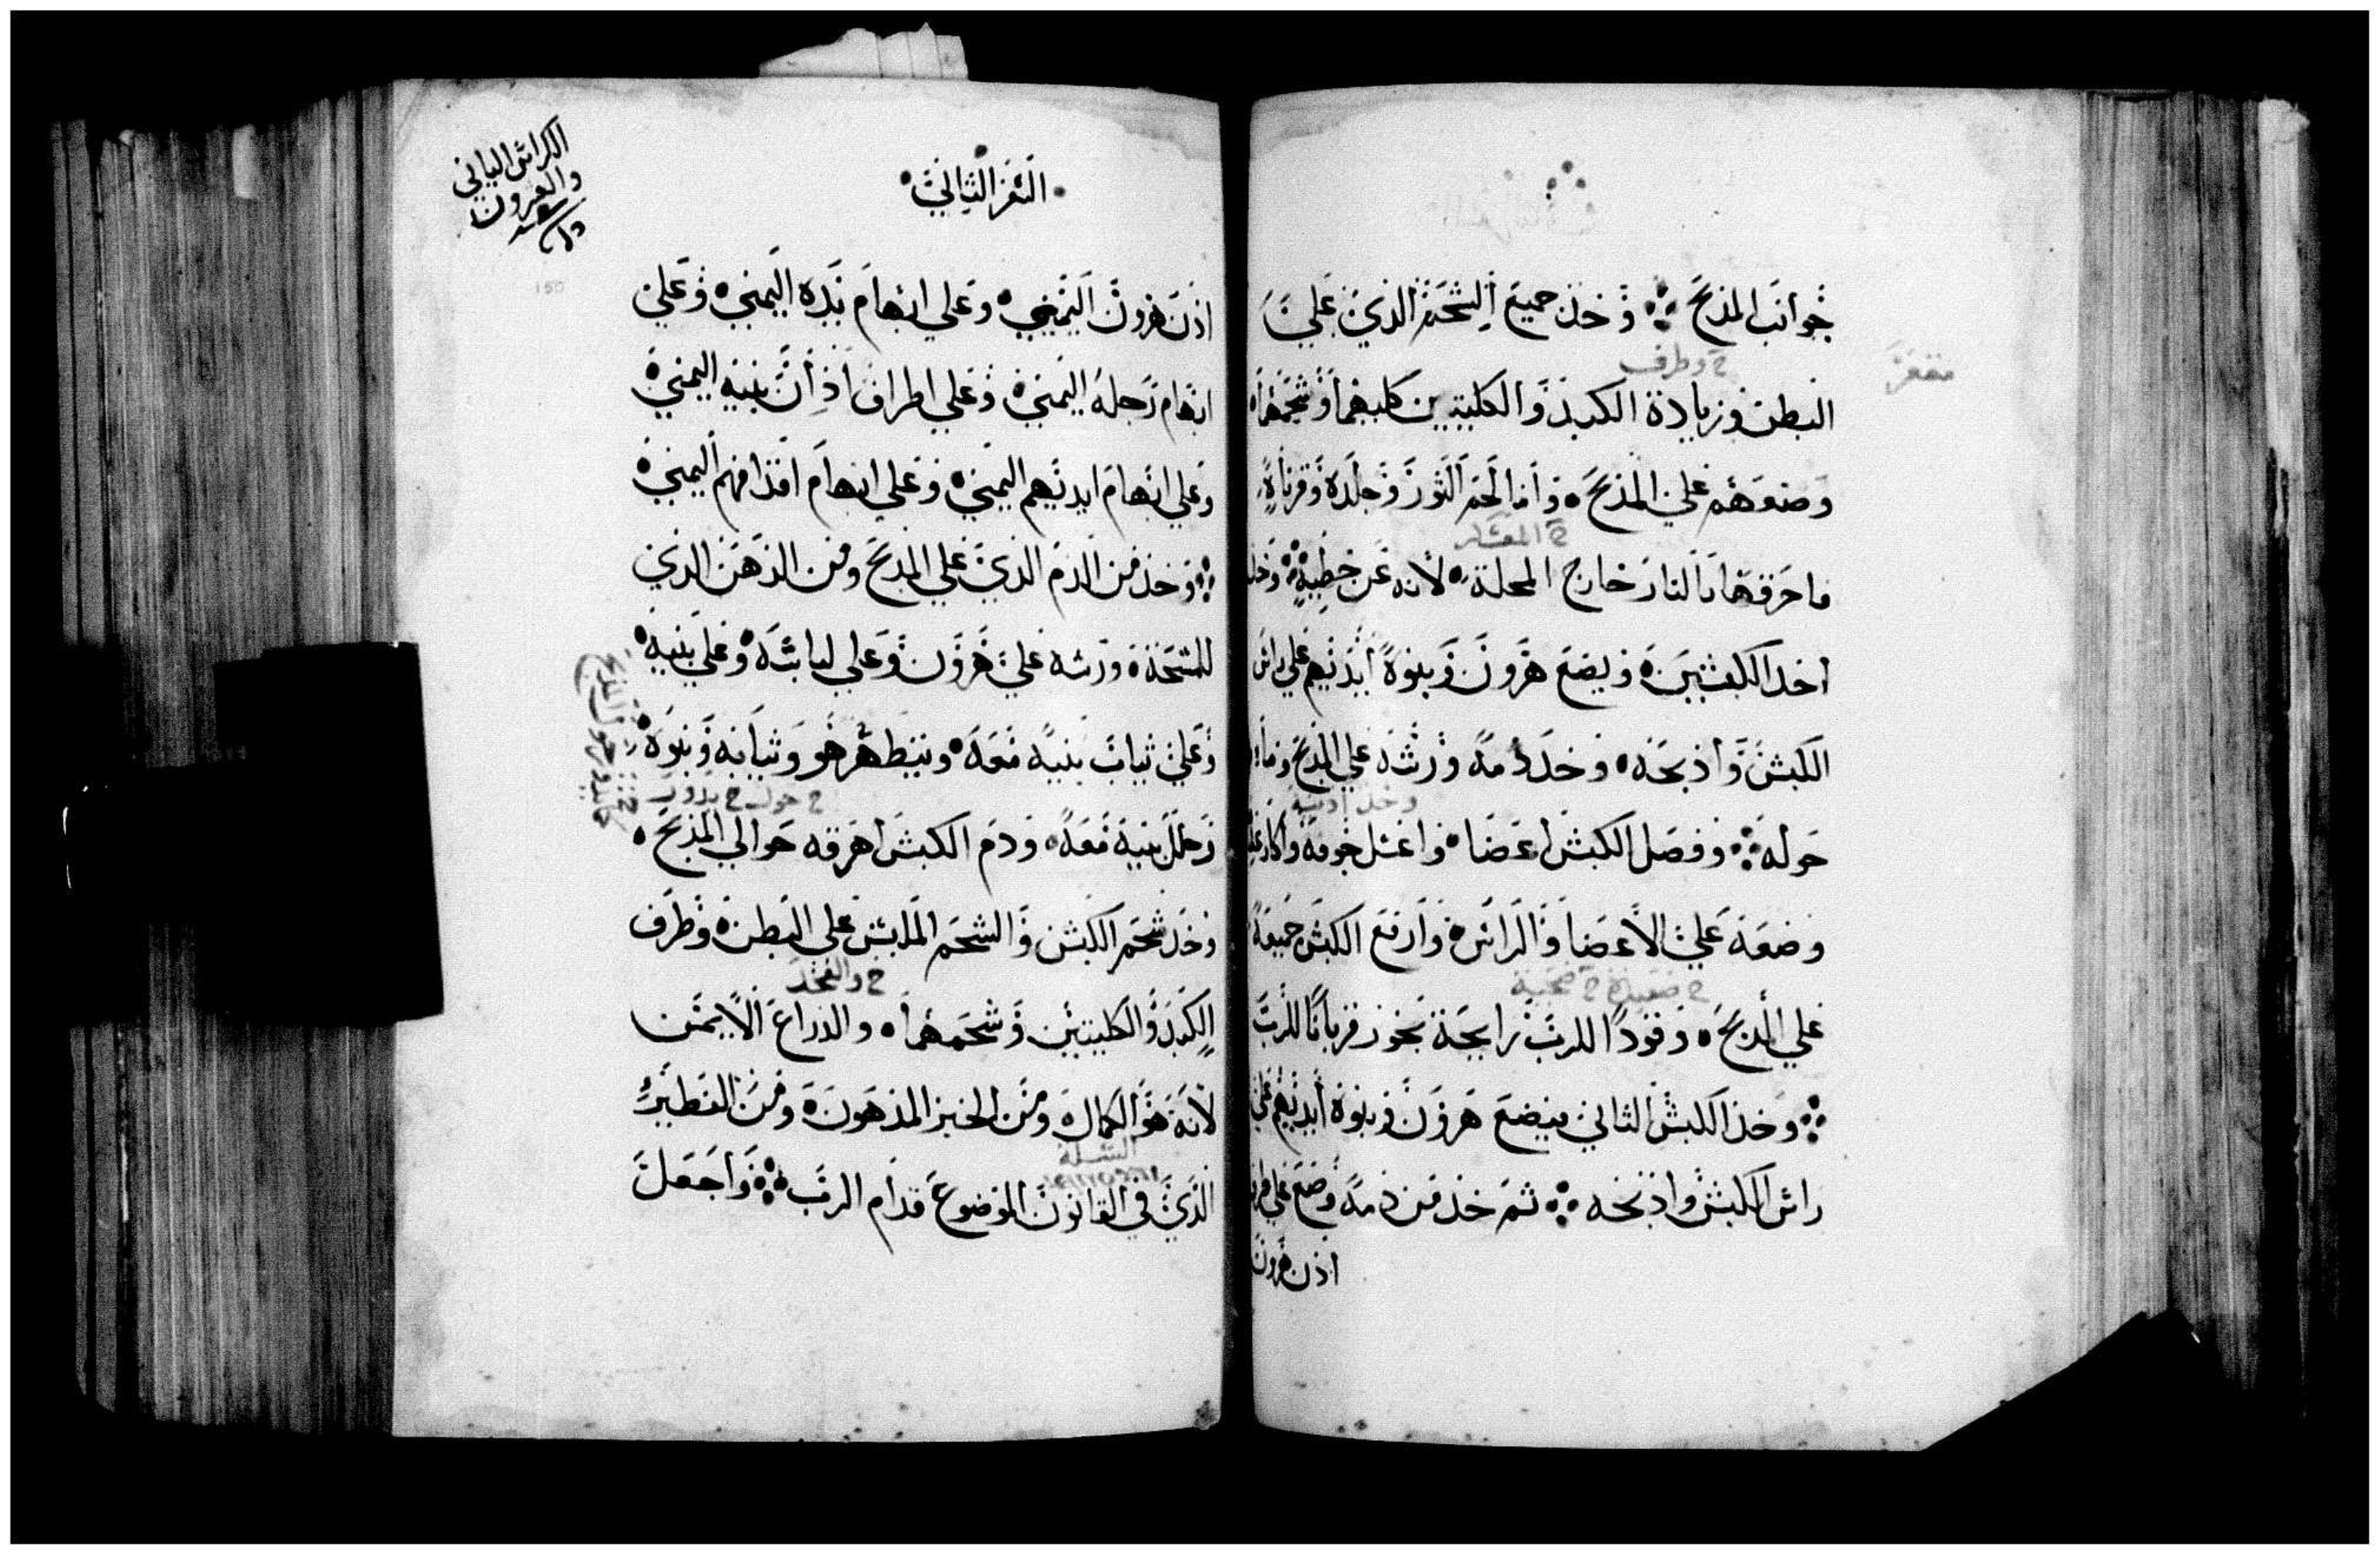 جوانب المذبح ⁘ وخذ جميع الشحم الذي علي
ح وطرف
مقعر
البطن وزيادة الكبد والكليتين كليهما وشحمهما
وضعهم علي المذبح • واما لحم الثور وجلده وفرثاه
ح المعسكر
فاحرقها بالنار خارج المحلة • لأنه عن خطية ⁘ وخد
احد الكبشين • ويضع هرون وبنوه أيديهم علي راس
الكبش واذبحه • وخد دمه ورشه علي المذبح وما
وخد
حوله ⁘ وفصل الكبش اعضا • واغسل جوفه واكارعه
وضعه علي الاعضا والراس • وارفع الكبش جميعه
ح صعيدة ح ضحية
علي المذبح • وقودًا للرب رايحة بخور قربانًا للرب
⁘ وخذ الكبش الثاني فيضع هرون وبنوه أيديهم علي
راس الكبش واذبحه ⁘ ثم خذ من دمه وضع علي
اذن هرون
السفر الثاني
الكراس الثاني
والعشرون
150
اذن هرون اليميني • وعلي ابهام يده اليمني • وعلي
ابهام رجله اليمني • وعلي اطراف اذان بنيه اليمني
وعلي ابهام ايديهم اليمني • وعلي ابهام اقدامهم اليمني
⁘ وخذ من الدم الذي علي المذبح ومن الدهن الذي
للمسحة • ورشه علي هرون وعلي لباسه • وعلي بنيه
وعلي ثياب بنيه معه • ويتطهر هو وثيابه وبنوه
ح حول ح يدور
وحلل بنيه معه • ودم الكبش اهرقه حوالي المذبح •
وخد شحم الكبش والشحم الملبس علي البطن • وطرف
ح والفخد
الكبد والكليتين وشحمهما • والدراع الايمن
لأنه هو الكمال • ومن الخبز المدهون • ومن الفطير
السلة
الذي في القانون الموضوع قدام الرب ⁘ واجعل